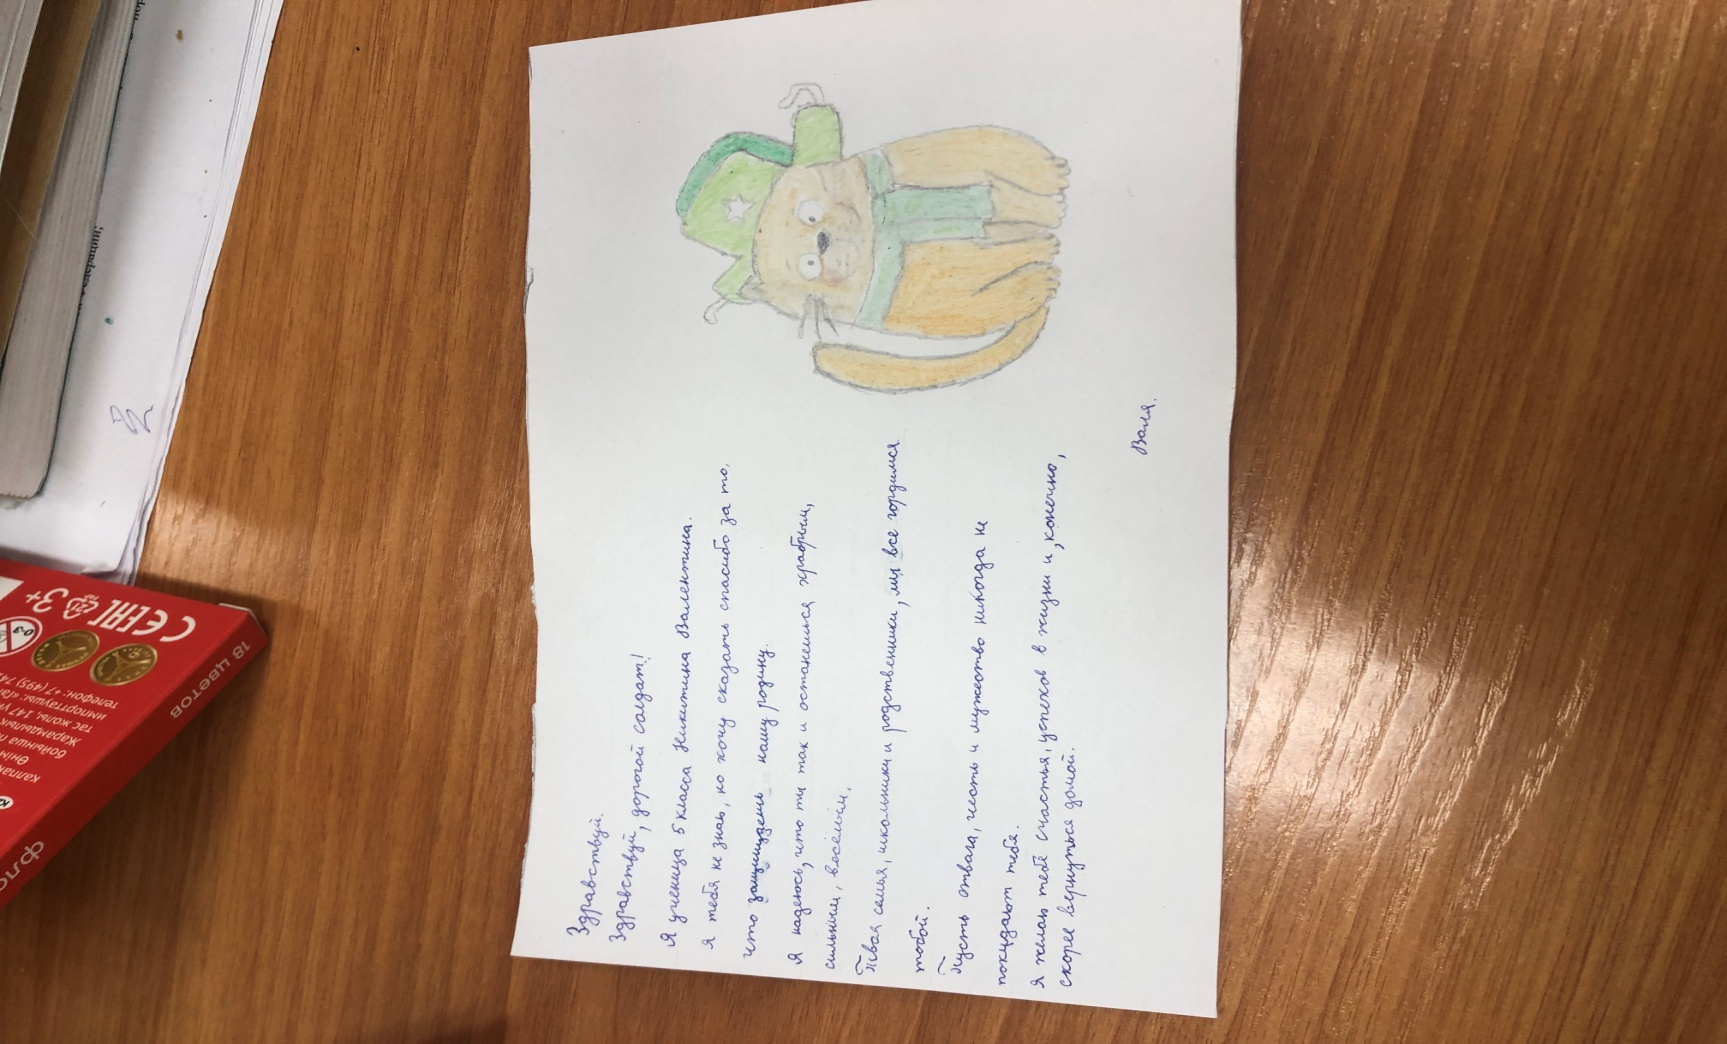 Здравствуй.
Здравствуй, дорогой солдат!
Я ученица 5 класса Никитина Валентина.
Я тебя не знаю, но хочу сказать спасибо за то,
что защищаешь нашу родину.
Я надеюсь, что ты так и останешься храбрым,
сильным, весёлым.
Твоя семья, школьники и родственники, мы все гордимся
тобой.
Пусть отвага, честь и мужество никогда не
покидают тебя.
Я желаю тебе счастья, успехов в жизни и, конечно,
скорее вернуться домой.
Валя.
18 цветов
CE EAC 3+
0-3
телефон: +7 (495) 74